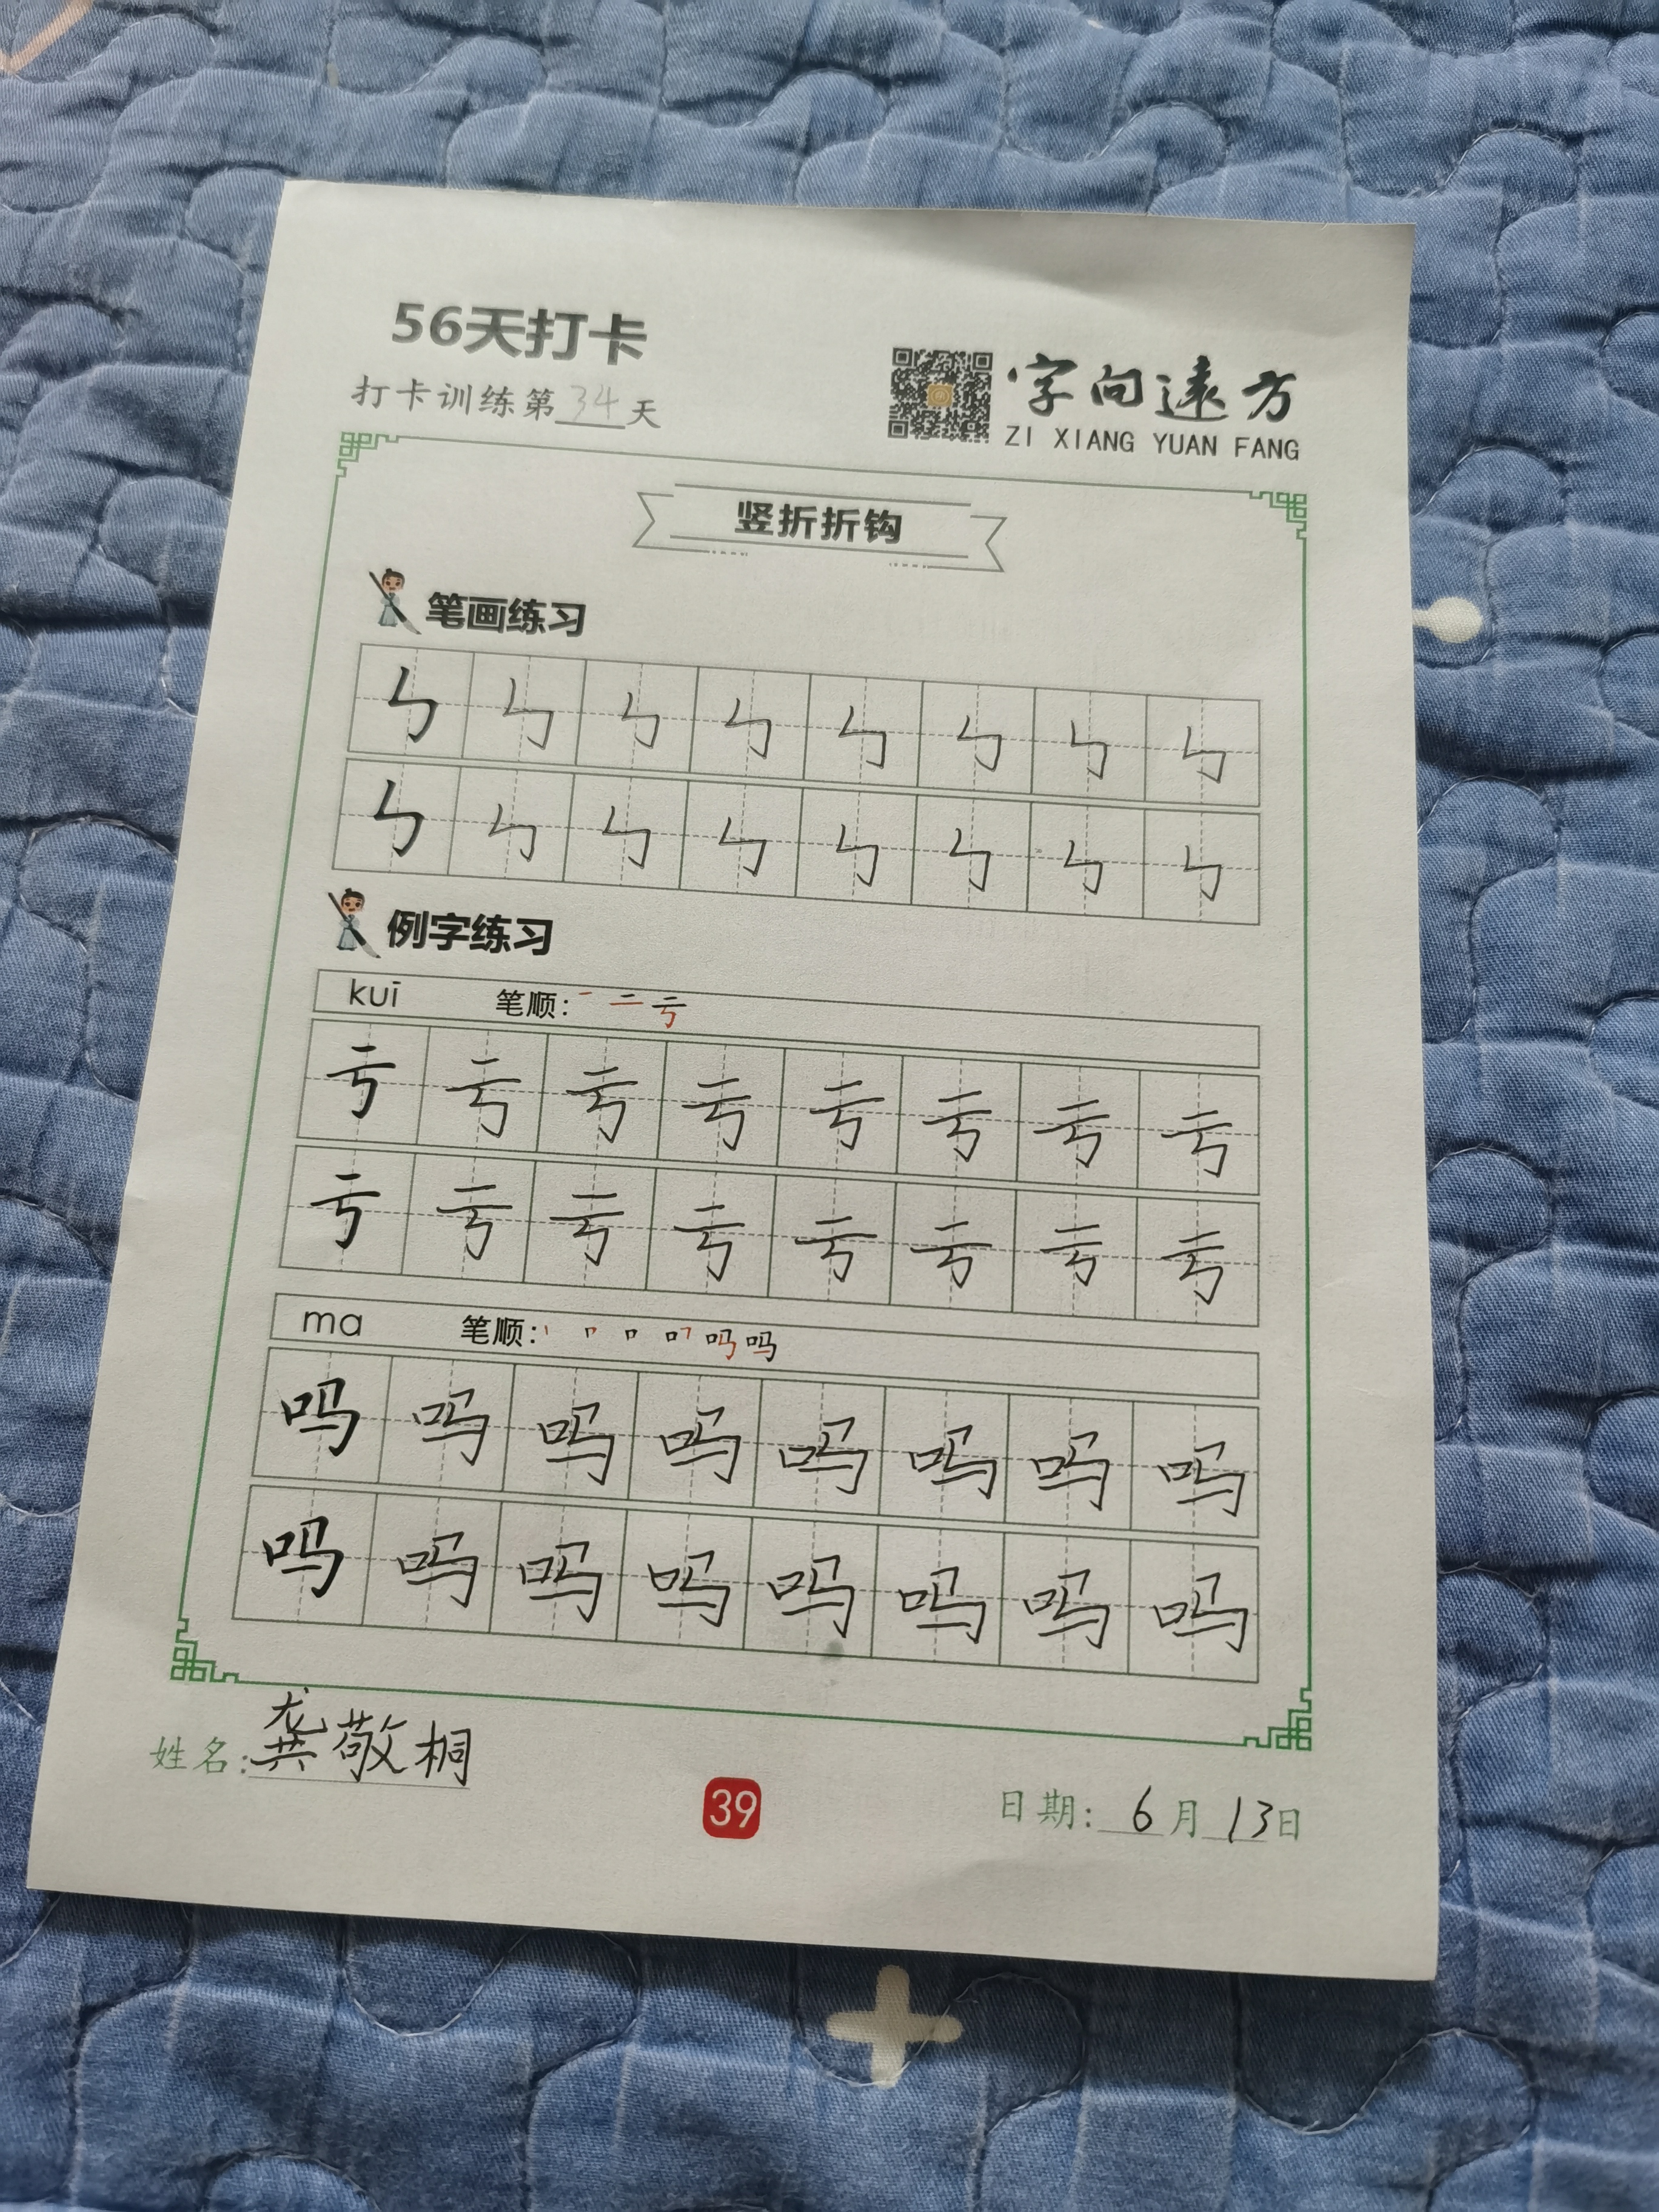 56天打卡
打卡训练第34天
字向遠方
ZI XIANG YUAN FANG
竖折折钩
笔画练习
㇉ ㇉ ㇉ ㇉ ㇉ ㇉ ㇉ ㇉
㇉ ㇉ ㇉ ㇉ ㇉ ㇉ ㇉ ㇉
例字练习
kuī 笔顺: 一 二 亏
亏 亏 亏 亏 亏 亏 亏 亏
亏 亏 亏 亏 亏 亏 亏 亏
ma 笔顺: 丨 𠃍 口 吗 吗
吗 吗 吗 吗 吗 吗 吗 吗
吗 吗 吗 吗 吗 吗 吗 吗
姓名:龚敬桐
39
日期: 6月13日